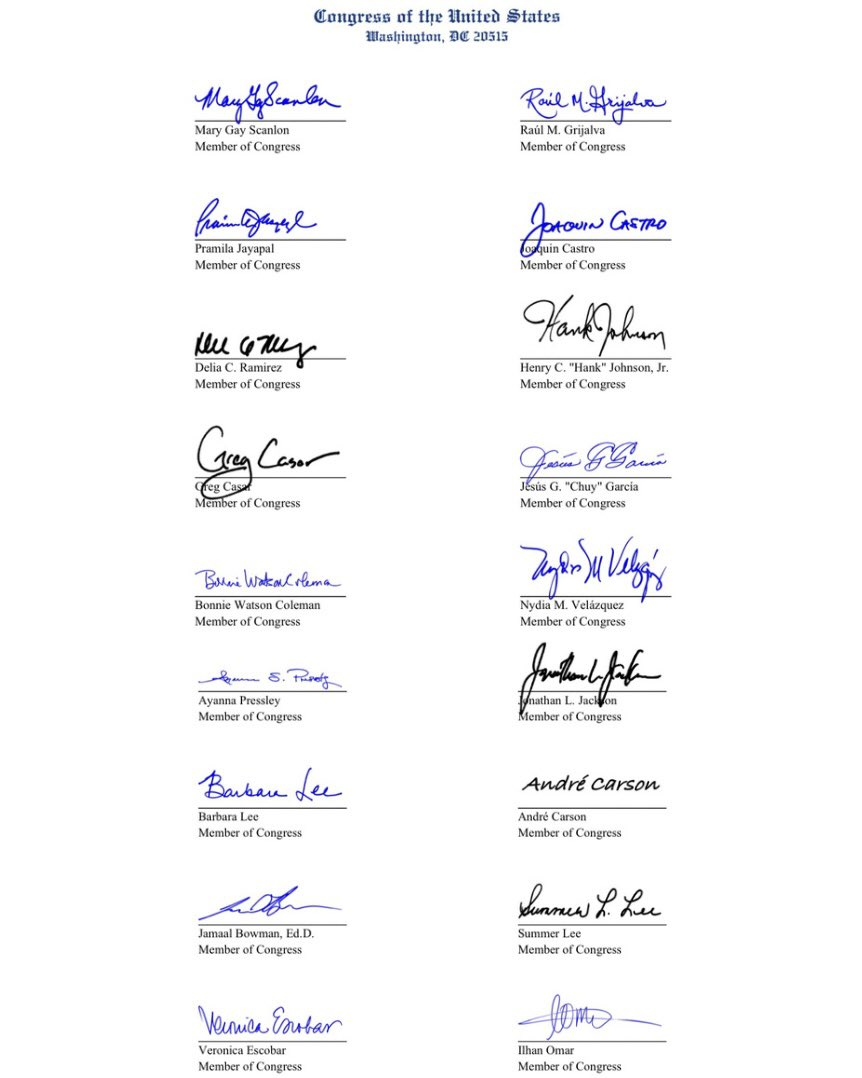 Congress of the United States
Washington, DC 20515
Mary Gay Scanlon
Raúl M. Grijalva
Mary Gay Scanlon
Raúl M. Grijalva
Member of Congress
Member of Congress
Joaquin Castro
Pramila Jayapal
Joaquin Castro
Member of Congress
Member of Congress
Hank Johnson
Delia C. Ramirez
Henry C. "Hank" Johnson, Jr.
Member of Congress
Member of Congress
Greg Casar
Jesús G García
Greg Casar
Jesús G. "Chuy" García
Member of Congress
Member of Congress
Bonnie Watson Coleman
Nydia M Velázquez
Bonnie Watson Coleman
Nydia M. Velázquez
Member of Congress
Member of Congress
Jonathan L. Jackson
Ayanna Pressley
Jonathan L. Jackson
Member of Congress
Member of Congress
Barbara Lee
André Carson
Barbara Lee
André Carson
Member of Congress
Member of Congress
Summer L. Lee
Jamaal Bowman, Ed.D.
Summer Lee
Member of Congress
Member of Congress
Veronica Escobar
Veronica Escobar
Ilhan Omar
Member of Congress
Member of Congress